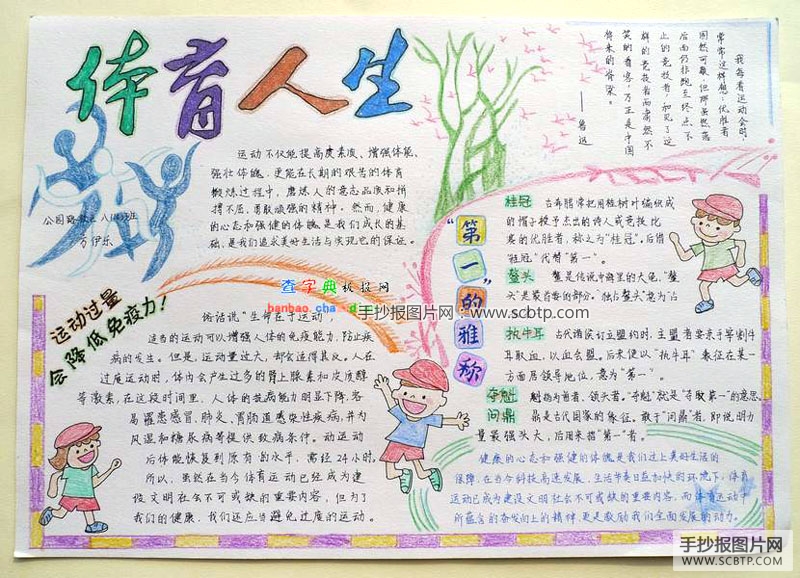 体育人生
运动不仅能提高度素质、增强体能、
强壮体魄,更能在长期的艰苦的体育
锻炼过程中,磨炼人的意志品质和拼
搏不屈,勇敢顽强的精神。然而,健康
的心态和强健的体魄是我们成长的基
础,是我们追求美好生活与实现它的保证。
公园路
伊乐
我每看运动会时,
常常这样想:优胜者
固然可敬,但那虽然落
后而仍非跑至终点不
止的竞技者,和见了这
样的竞技者而肃然不
笑的看客,乃正是中国
将来的脊梁。
——鲁迅
查字典板报网
手抄报图片网:www.scbtp.com
运动过量
会降低免疫力!
俗话说“生命在于运动”,
适当的运动可以增强人体的免疫能力,防止疾
病的发生。但是,运动量过大,却会适得其反。人在
过度运动时,体内会产生过多的肾上腺素和皮质醇
等激素,在这段时间里,人体的抗病能力明显下降,容
易罹患感冒、肺炎、胃肠道感染性疾病,并为
风湿和糖尿病等提供致病条件。动运动
后体能恢复到原有的水平,需经24小时。
所以,虽然在当今体育运动已经成为建
设文明社会不可或缺的重要内容,但为了
我们的健康,我们还应当避免过度的运动。
“第一”的雅称
桂冠 古希腊常把用桂树叶编织成
的帽子授予杰出的诗人或竞技比
赛的优胜者,称之为“桂冠”。后借
“桂冠”代替“第一”。
鳌头 鳌是传说中海里的大龟,“鳌
头”是最首要的部分。“独占鳌头”意为“占
执牛耳 古代诸侯订立盟约时,主盟者要亲手宰割牛
耳取血,以血会盟。后来便以“执牛耳”表征在某一
方面居领导地位,意为“第一”。
夺魁 魁指为首者,领头者。“夺魁”就是“夺取第一”的意思。
问鼎 鼎是古代国家的象征。敢于“问鼎”者,即说明力
量最强大,后用来指“第一”者。
健康的心态和强健的体魄是我们过上美好生活的
保障,在当今科技高速发展、生活节奏日益加快的环境下,体育
运动已成为建设文明社会不可或缺的重要内容,而体育运动中
所蕴含的奋发向上的精神,更是激励我们全面发展的动力。
手抄报图片网
WWW.SCBTP.COM